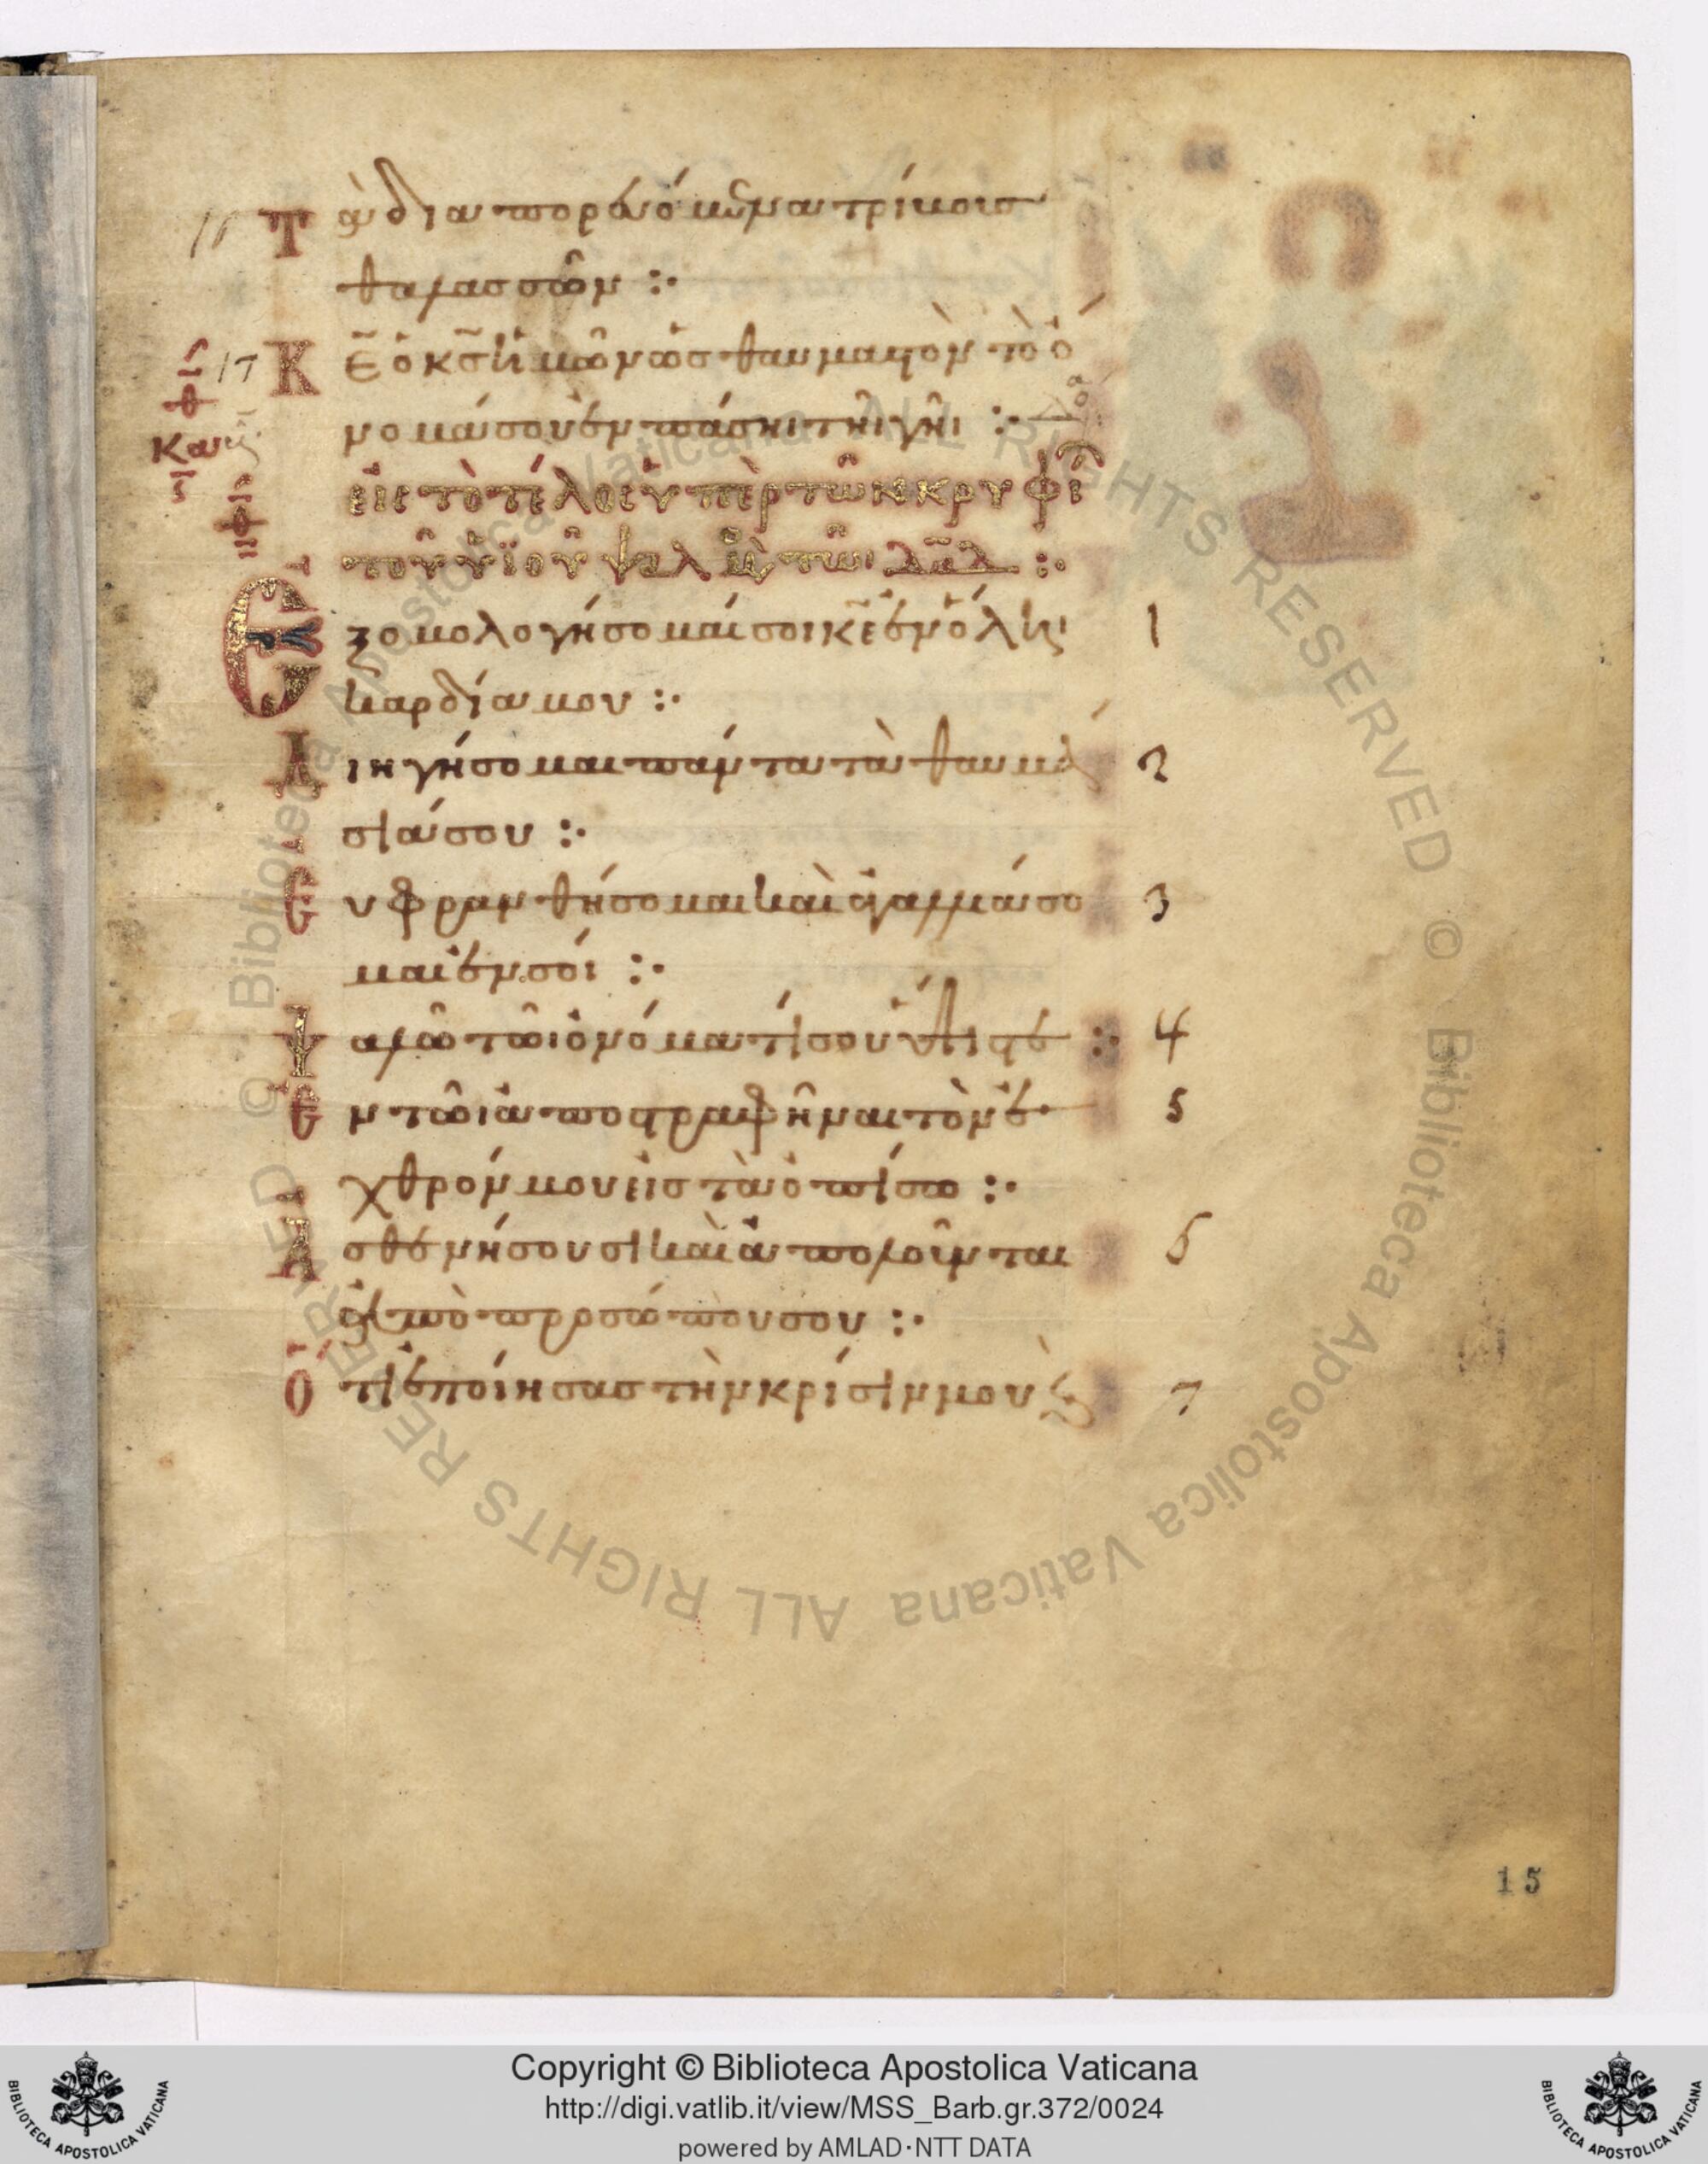 16 Τὰ διαπορευόμενα τρίβοισ
θαλασσῶν :·
17 Κε̄ ὁ κσ̄ ἡμῶν ὡσ θαυμαστὸν τὸ ὄ
νομά σου ἐν πάσηι τῆι γῆι :·
εἰς τὸ τέλος ὑπὲρ τῶν κρυφί
τοῦ ὑϊοῦ ψαλμὸς τῶι δᾱδ :·
Ἐξομολογήσομαί σοι κε̄ ἐν ὅληι 1
καρδία μου :·
Διηγήσομαι πάντα τὰ θαυμά 2
σιά σου :·
Εὐφρανθήσομαι καὶ ἀγαλλιάσο 3
μαι ἐν σοί :·
Ψαλῶ τῶι ὀνόματί σου ὕψιστε :· 4
Ἐν τῶι ἀποστραφῆναι τὸν ἐ 5
χθρόν μου εἰσ τὰ ὀπίσω :·
Ἀσθενήσουσι καὶ ἀπολοῦνται 6
ἀπὸ προσώπου σου :·
Ὅτι ἐποίησασ τὴν κρίσιν μου ϗ 7
15
Copyright © Biblioteca Apostolica Vaticana
http://digi.vatlib.it/view/MSS_Barb.gr.372/0024
powered by AMLAD·NTT DATA
BIBLIOTECA APOSTOLICA VATICANA
BIBLIOTECA APOSTOLICA VATICANA
© Biblioteca Apostolica Vaticana ALL RIGHTS RESERVED © Biblioteca Apostolica Vaticana ALL RIGHTS RESERVED